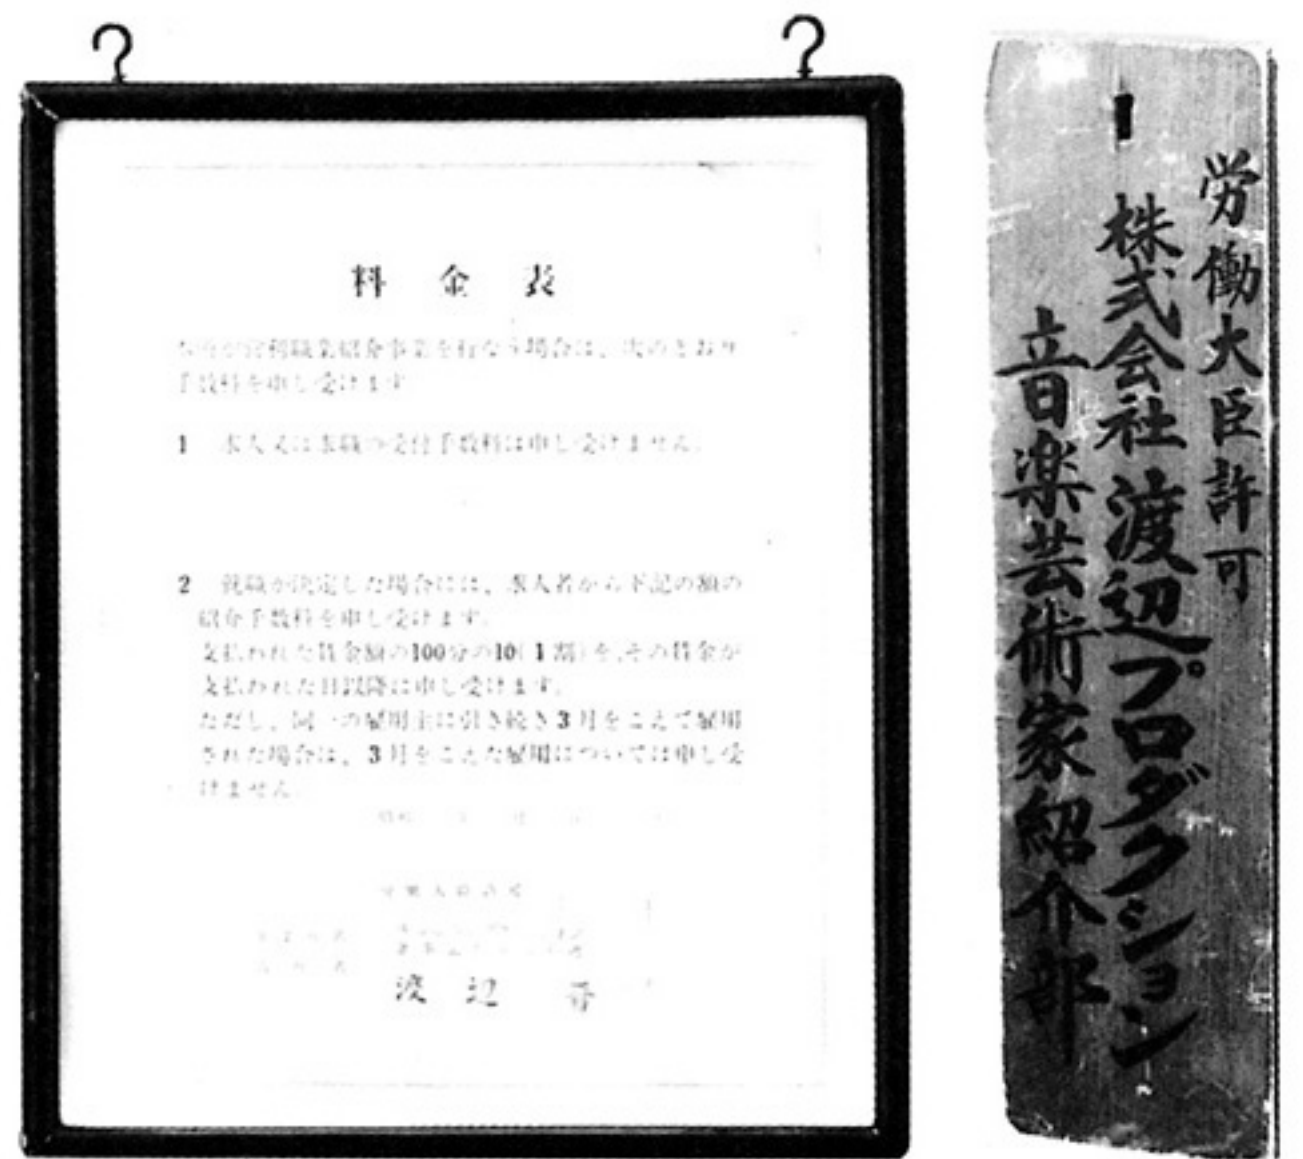 料金表
営利職業紹介事業を行なう場合は、次のとおり
手数料を申し受けます
1 求人又は求職の受付手数料は申し受けません。
2 就職が決定した場合には、求人者から下記の額の
紹介手数料を申し受けます。
支払われた賃金額の100分の10(1割)を、その賃金が
支払われた日以降に申し受けます。
ただし、同一の雇用主に引き続き3月をこえて雇用
された場合は、3月をこえた雇用については申し受
けません。
渡辺 晋
労働大臣許可
株式会社渡辺プロダクション
音楽芸術家紹介部